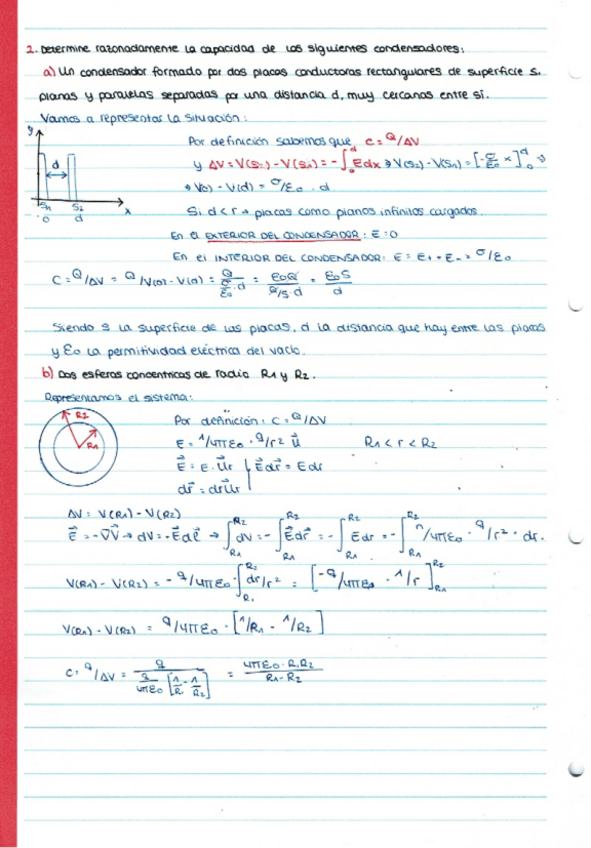 2. Determine razonadamente la capacidad de los siguientes condensadores:
a) Un condensador formado por dos placas conductoras rectangulares de superficie s.
planas y paralelas separadas por una distancia d, muy cercanas entre sí.
Vamos a representar la situación:
y
d
S1 S2 x
0 d
Por definición sabemos que C = Q/ΔV
y ΔV = V(S2) - V(S1) = -∫₀ᵈ E dx → V(S2) - V(S1) = [-σ/ε0 x]₀ᵈ ⇒
→ V(0) - V(d) = σ/ε0 · d
Si d < r → placas como planos infinitos cargados.
En el EXTERIOR DEL CONDENSADOR: E = 0
En el INTERIOR DEL CONDENSADOR: E = E+ + E- = σ/ε0
C = Q/ΔV = Q/V(0) - V(d) = Q/(σ/ε0 · d) = ε0Q/(Q/S · d) = ε0S/d
Siendo s la superficie de las placas, d la distancia que hay entre las placas
y ε0 la permitividad eléctrica del vacío.
b) Dos esferas concéntricas de radio R1 y R2.
Representamos el sistema:
R2
R1
Por definición: C = Q/ΔV
E = 1/4πε0 · q/r² u⃗ R1 < r < R2
E⃗ = E · u⃗r | E⃗dr⃗ = Edr
dr⃗ = dr u⃗r
ΔV = V(R1) - V(R2)
E⃗ = -∇⃗V → dV = -E⃗dl⃗ → ∫R1R2 dV = -∫R1R2 E⃗dr⃗ = -∫R1R2 Edr = -∫R1R2 1/4πε0 · q/r² · dr.
V(R1) - V(R2) = -q/4πε0 · ∫R1R2 dr/r² = [-q/4πε0 · 1/r]R1R2
V(R1) - V(R2) = q/4πε0 · [1/R1 - 1/R2]
C = q/ΔV = q/(q/4πε0 [1/R - 1/R2]) = 4πε0 · R1R2/R1 - R2